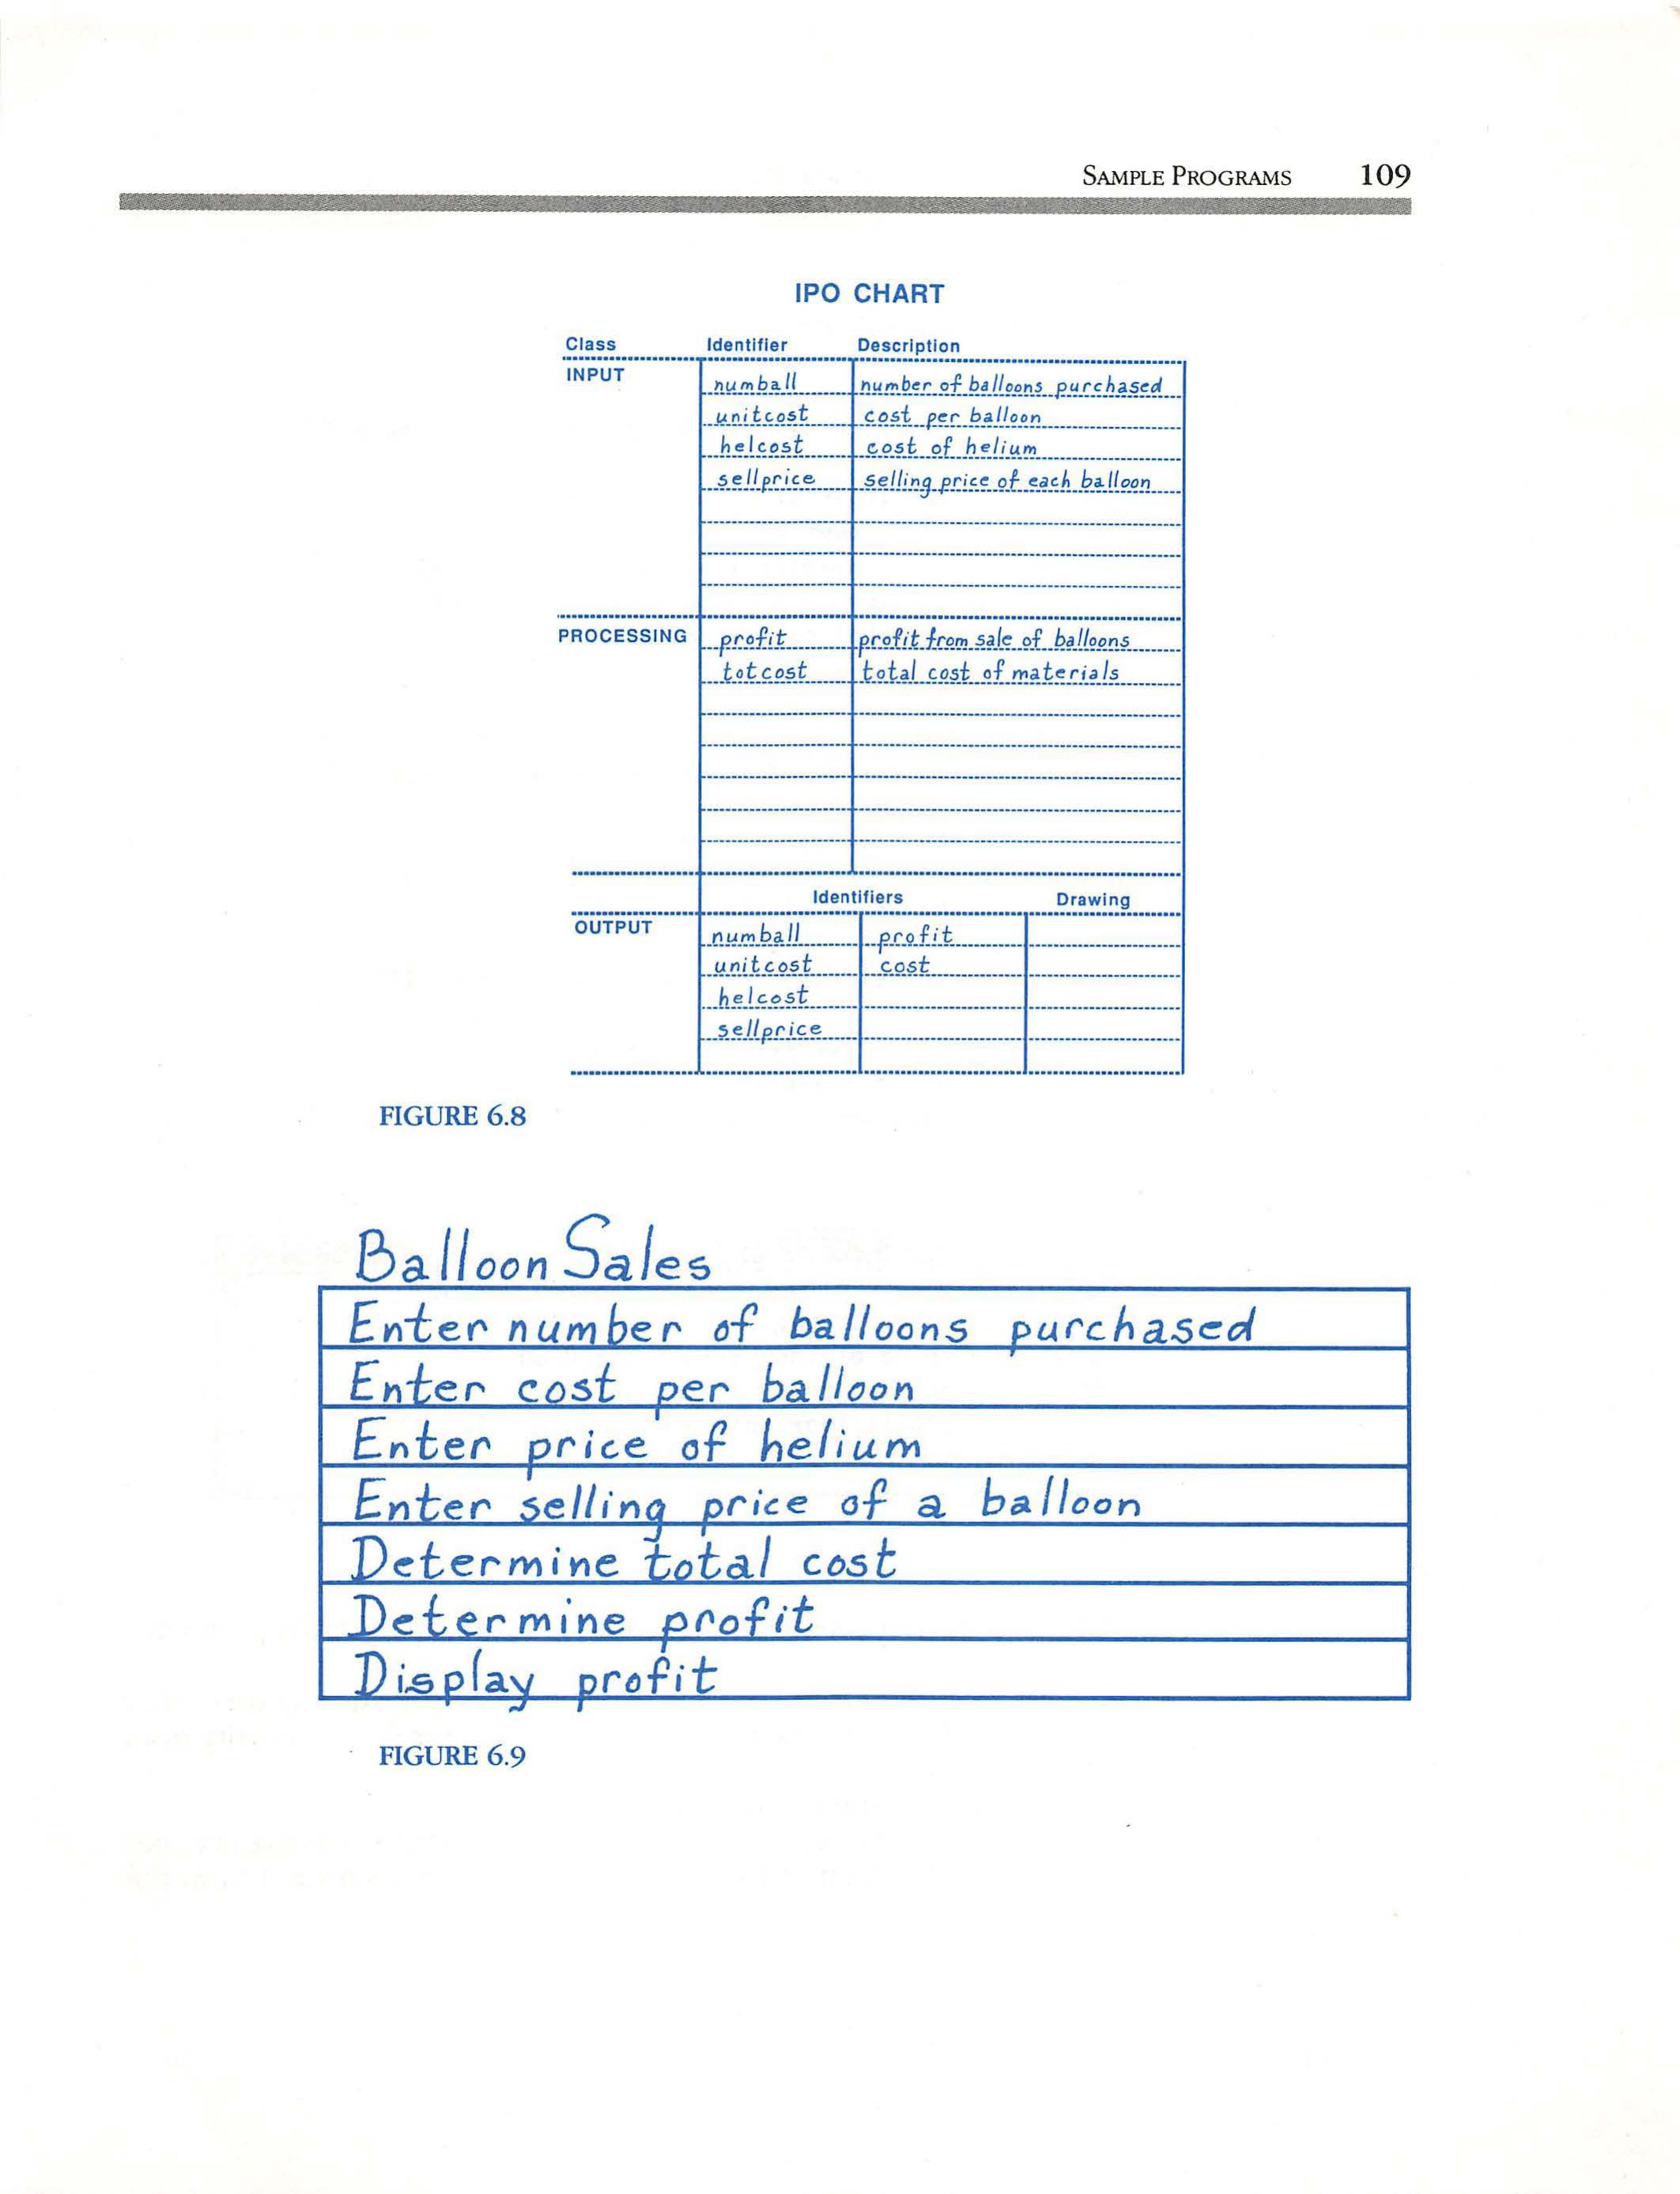 SAMPLE PROGRAMS 109
IPO CHART
Class Identifier Description
INPUT numball number of balloons purchased
unitcost cost per balloon
helcost cost of helium
sellprice selling price of each balloon
PROCESSING profit profit from sale of balloons
totcost total cost of materials
Identifiers Drawing
OUTPUT numball profit
unitcost cost
helcost
sellprice
FIGURE 6.8
Balloon Sales
Enter number of balloons purchased
Enter cost per balloon
Enter price of helium
Enter selling price of a balloon
Determine total cost
Determine profit
Display profit
FIGURE 6.9